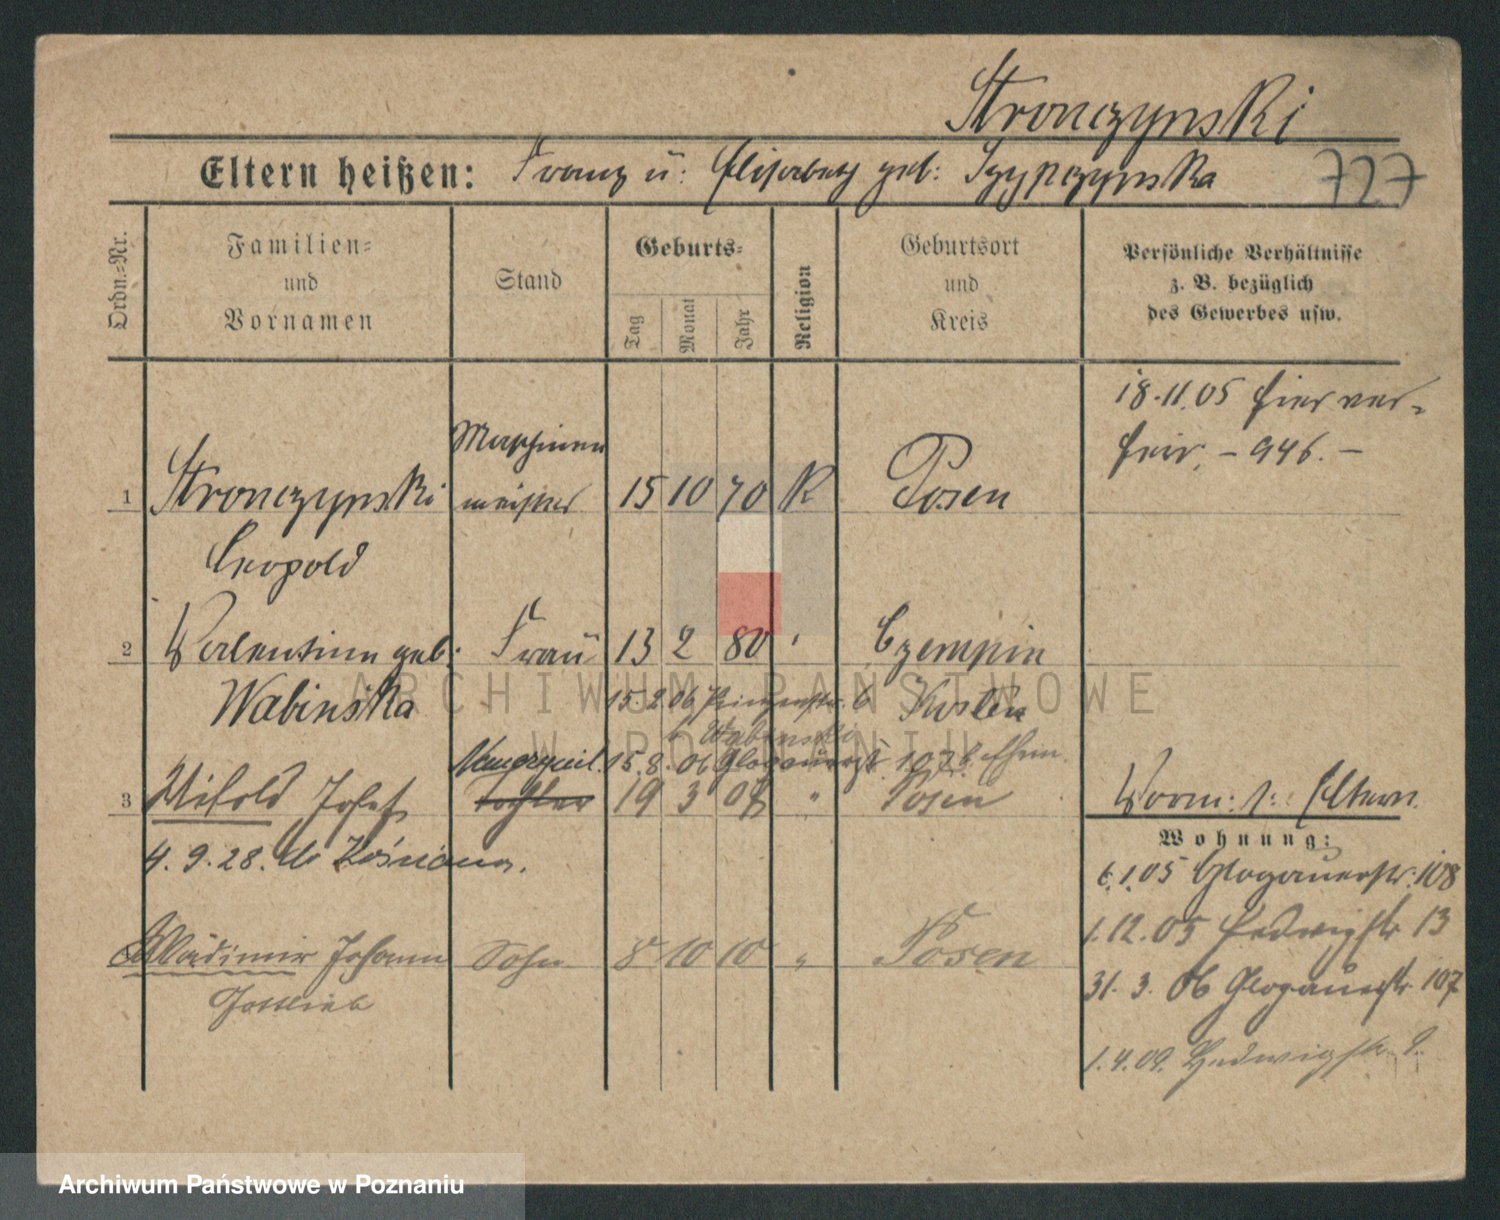 Stronczynski
Eltern heißen: Franz u: Elisabeth geb: Szypczynska
727
Ordn.=Nr.
Familien=
und
Vornamen
Stand
Geburts=
Tag
Monat
Jahr
Religion
Geburtsort
und
Kreis
Persönliche Verhältnisse
z. B. bezüglich
des Gewerbes usw.
18.11.05 hier ver-
heir. – 946. –
Maschinen
1 Stronczynski meister 15 10 70 K Posen
Leopold
2 Valentine geb: Frau 13 2 80 " Czempin
Wabinska Kosten
15.2.06
Wabinski
15.8.06 Glogauerstr. 107
3 Witold Josef Tochter 19 3 " Posen
4.9.28. do
Wladimir Johann Sohn 8 10 10 " Posen
Gottlieb
Vorm: s: Eltern
Wohnung:
6.1.05 Glogauerstr. 108
1.12.05 Hedwigstr 13
31.3.06 Glogauerstr 107
1.4.09. Hedwigstr. 9.
ARCHIWUM PAŃSTWOWE
W POZNANIU
Archiwum Państwowe w Poznaniu